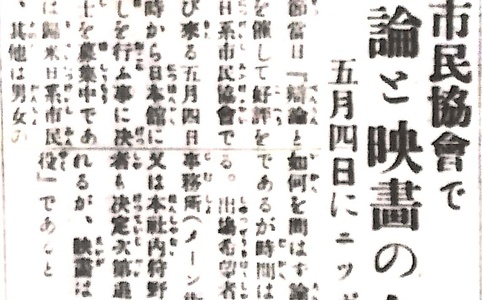 市民協會で
論と映畫の
五月四日にニッ
節當日『辯論と如何を問はず論
を催して好評をであるが時間は
日系市民協會でる。出場希望者
び來る五月四日事務所(メーン街
時から日本館に又は本社内狩野
しを行ふ事に決者も決定次第通
士を募集中であれるが、映畫は
は歸米日系市民役』であると
、其他は男女の